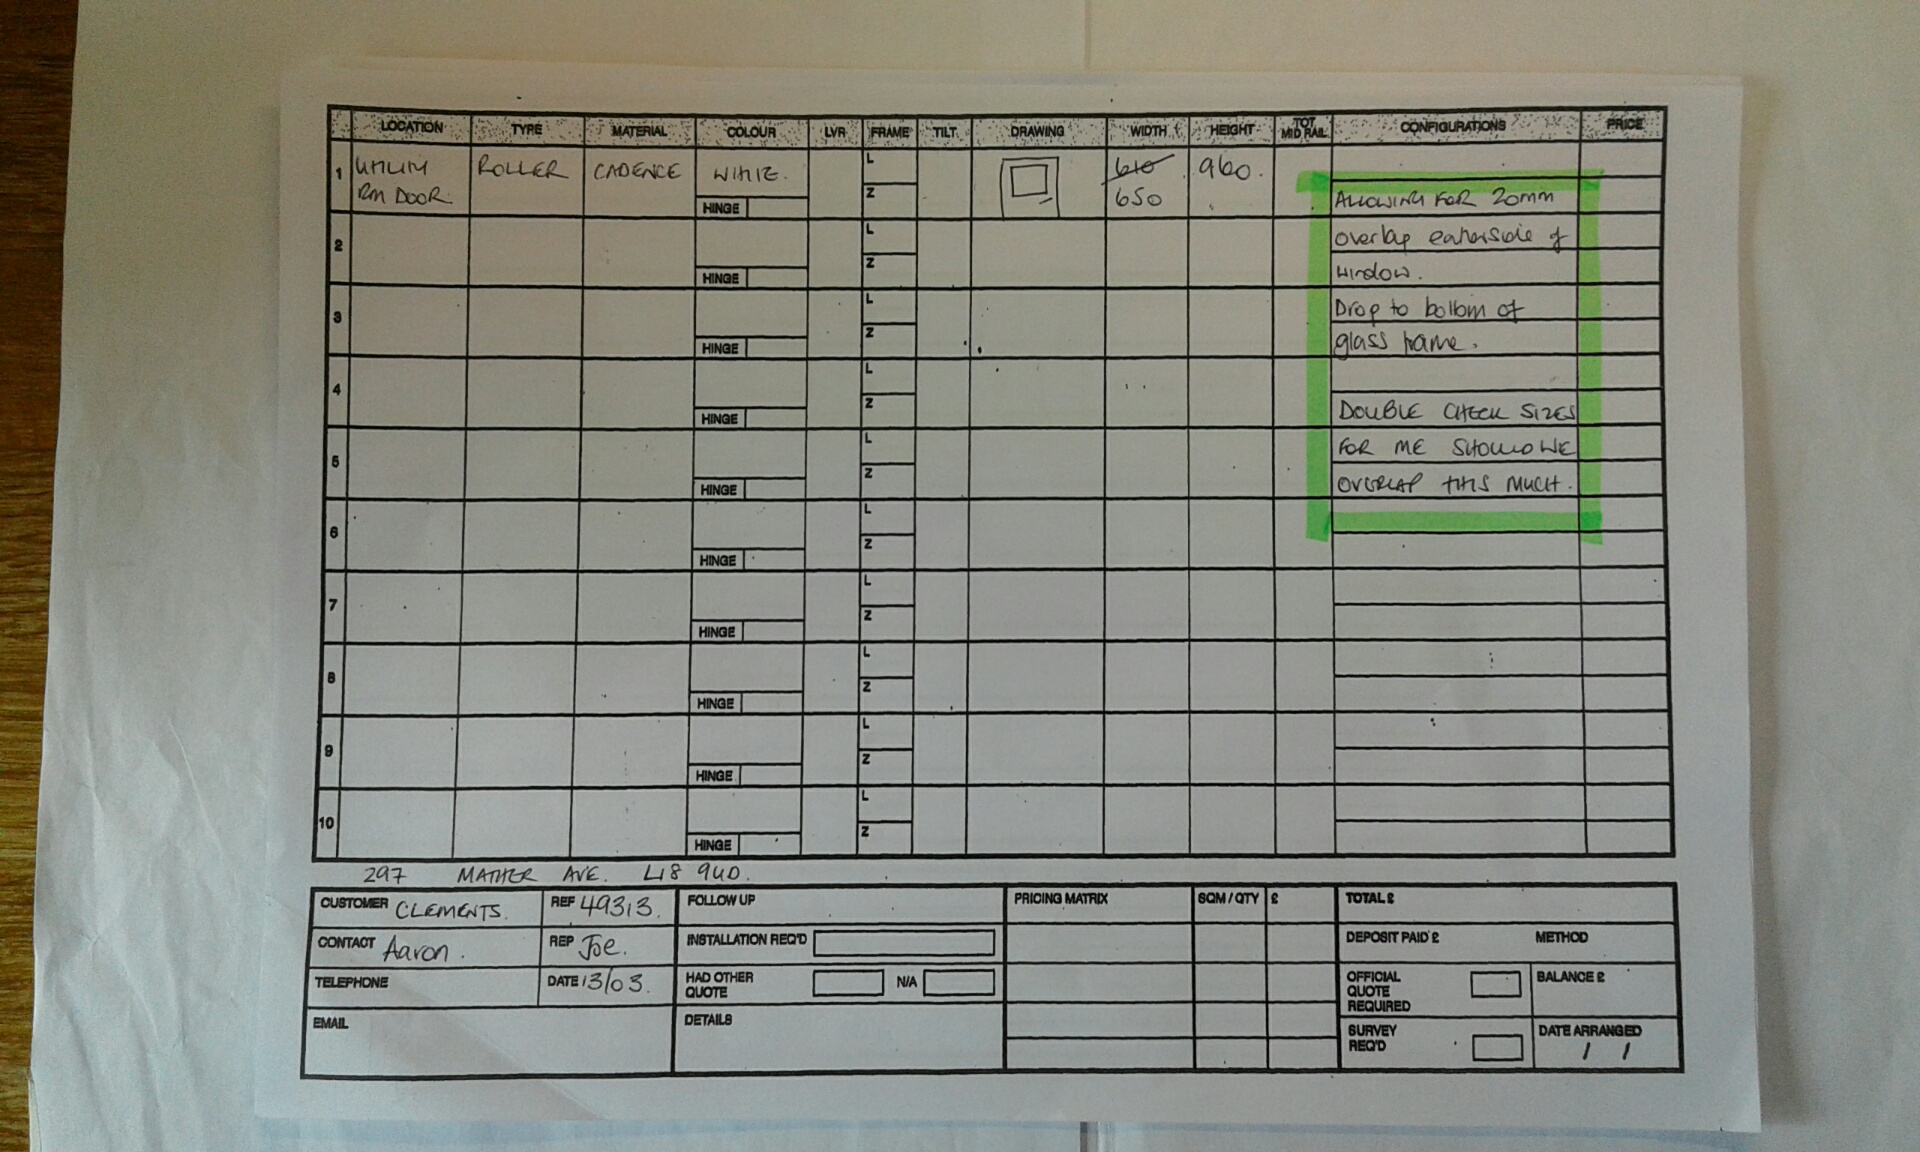 LOCATION TYPE MATERIAL COLOUR LVR FRAME TILT DRAWING WIDTH HEIGHT TOT MID RAIL CONFIGURATIONS PRICE
1 UTILITY RM DOOR. ROLLER CADENCE WHITE. HINGE L Z 610 650 960.
ALLOWING FOR 20mm
overlap eitherside of
window.
Drop to bottom of
glass frame.
DOUBLE CHECK SIZES
FOR ME SHOULD WE
OVERLAP THIS MUCH.
2 HINGE L Z
3 HINGE L Z
4 HINGE L Z
5 HINGE L Z
6 HINGE L Z
7 HINGE L Z
8 HINGE L Z
9 HINGE L Z
10 HINGE L Z
297 MATHER AVE. L18 9UD.
CUSTOMER CLEMENTS. REF 49313.
CONTACT Aaron. REP Joe.
TELEPHONE DATE 13/03.
EMAIL
FOLLOW UP
INSTALLATION REQ'D
HAD OTHER QUOTE N/A
DETAILS
PRICING MATRIX SQM / QTY £
TOTAL £
DEPOSIT PAID £ METHOD
OFFICIAL QUOTE REQUIRED BALANCE £
SURVEY REQ'D DATE ARRANGED
/ /